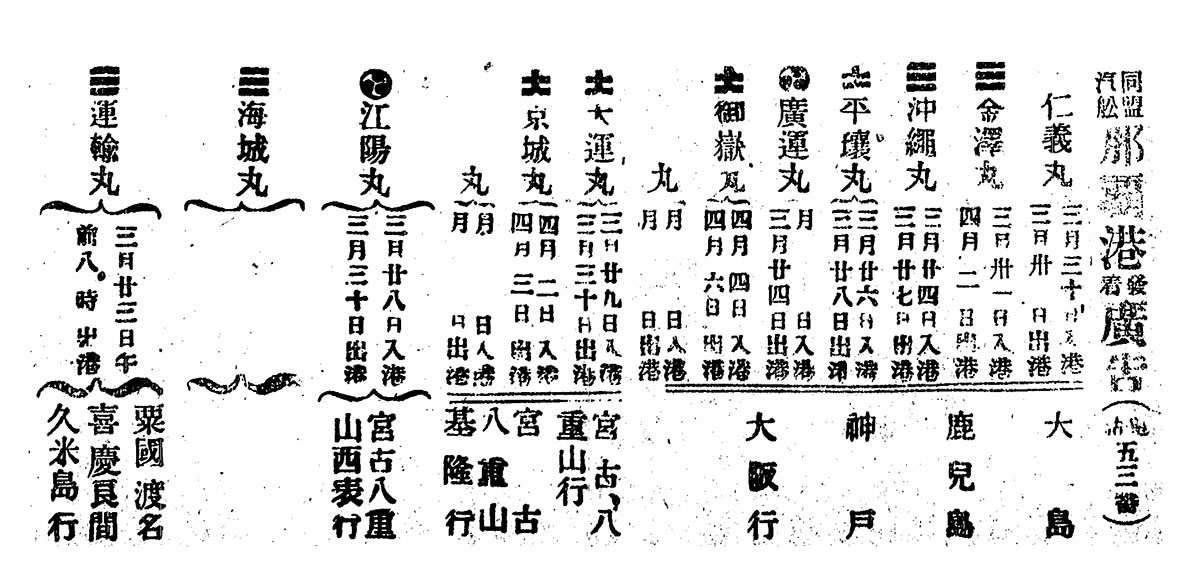 同盟汽舩 那覇港發着廣告 (電話五三番)
仁義丸 三月三十日入港 三月卅日出港
金澤丸 三月卅一日入港 四月一日出港
沖繩丸 三月廿四日入港 三月廿七日出港
平壤丸 三月廿六日入港 三月廿八日出港
廣運丸 月 日入港 三月廿四日出港
御嶽丸 四月四日入港 四月六日出港
丸 月 日入港 月 日出港
大島 鹿兒島 神戸 大阪行
大運丸 三月廿九日入港 三月三十日出港
京城丸 四月二日入港 四月三日出港
丸 月 日入港 月 日出港
宮古、八重山行
宮古 八重山 基隆行
江陽丸 三月廿八日入港 三月三十日出港 宮古八重山西表行
海城丸
運輸丸 三月廿三日午前八時出港 粟國渡名喜慶良間久米島行